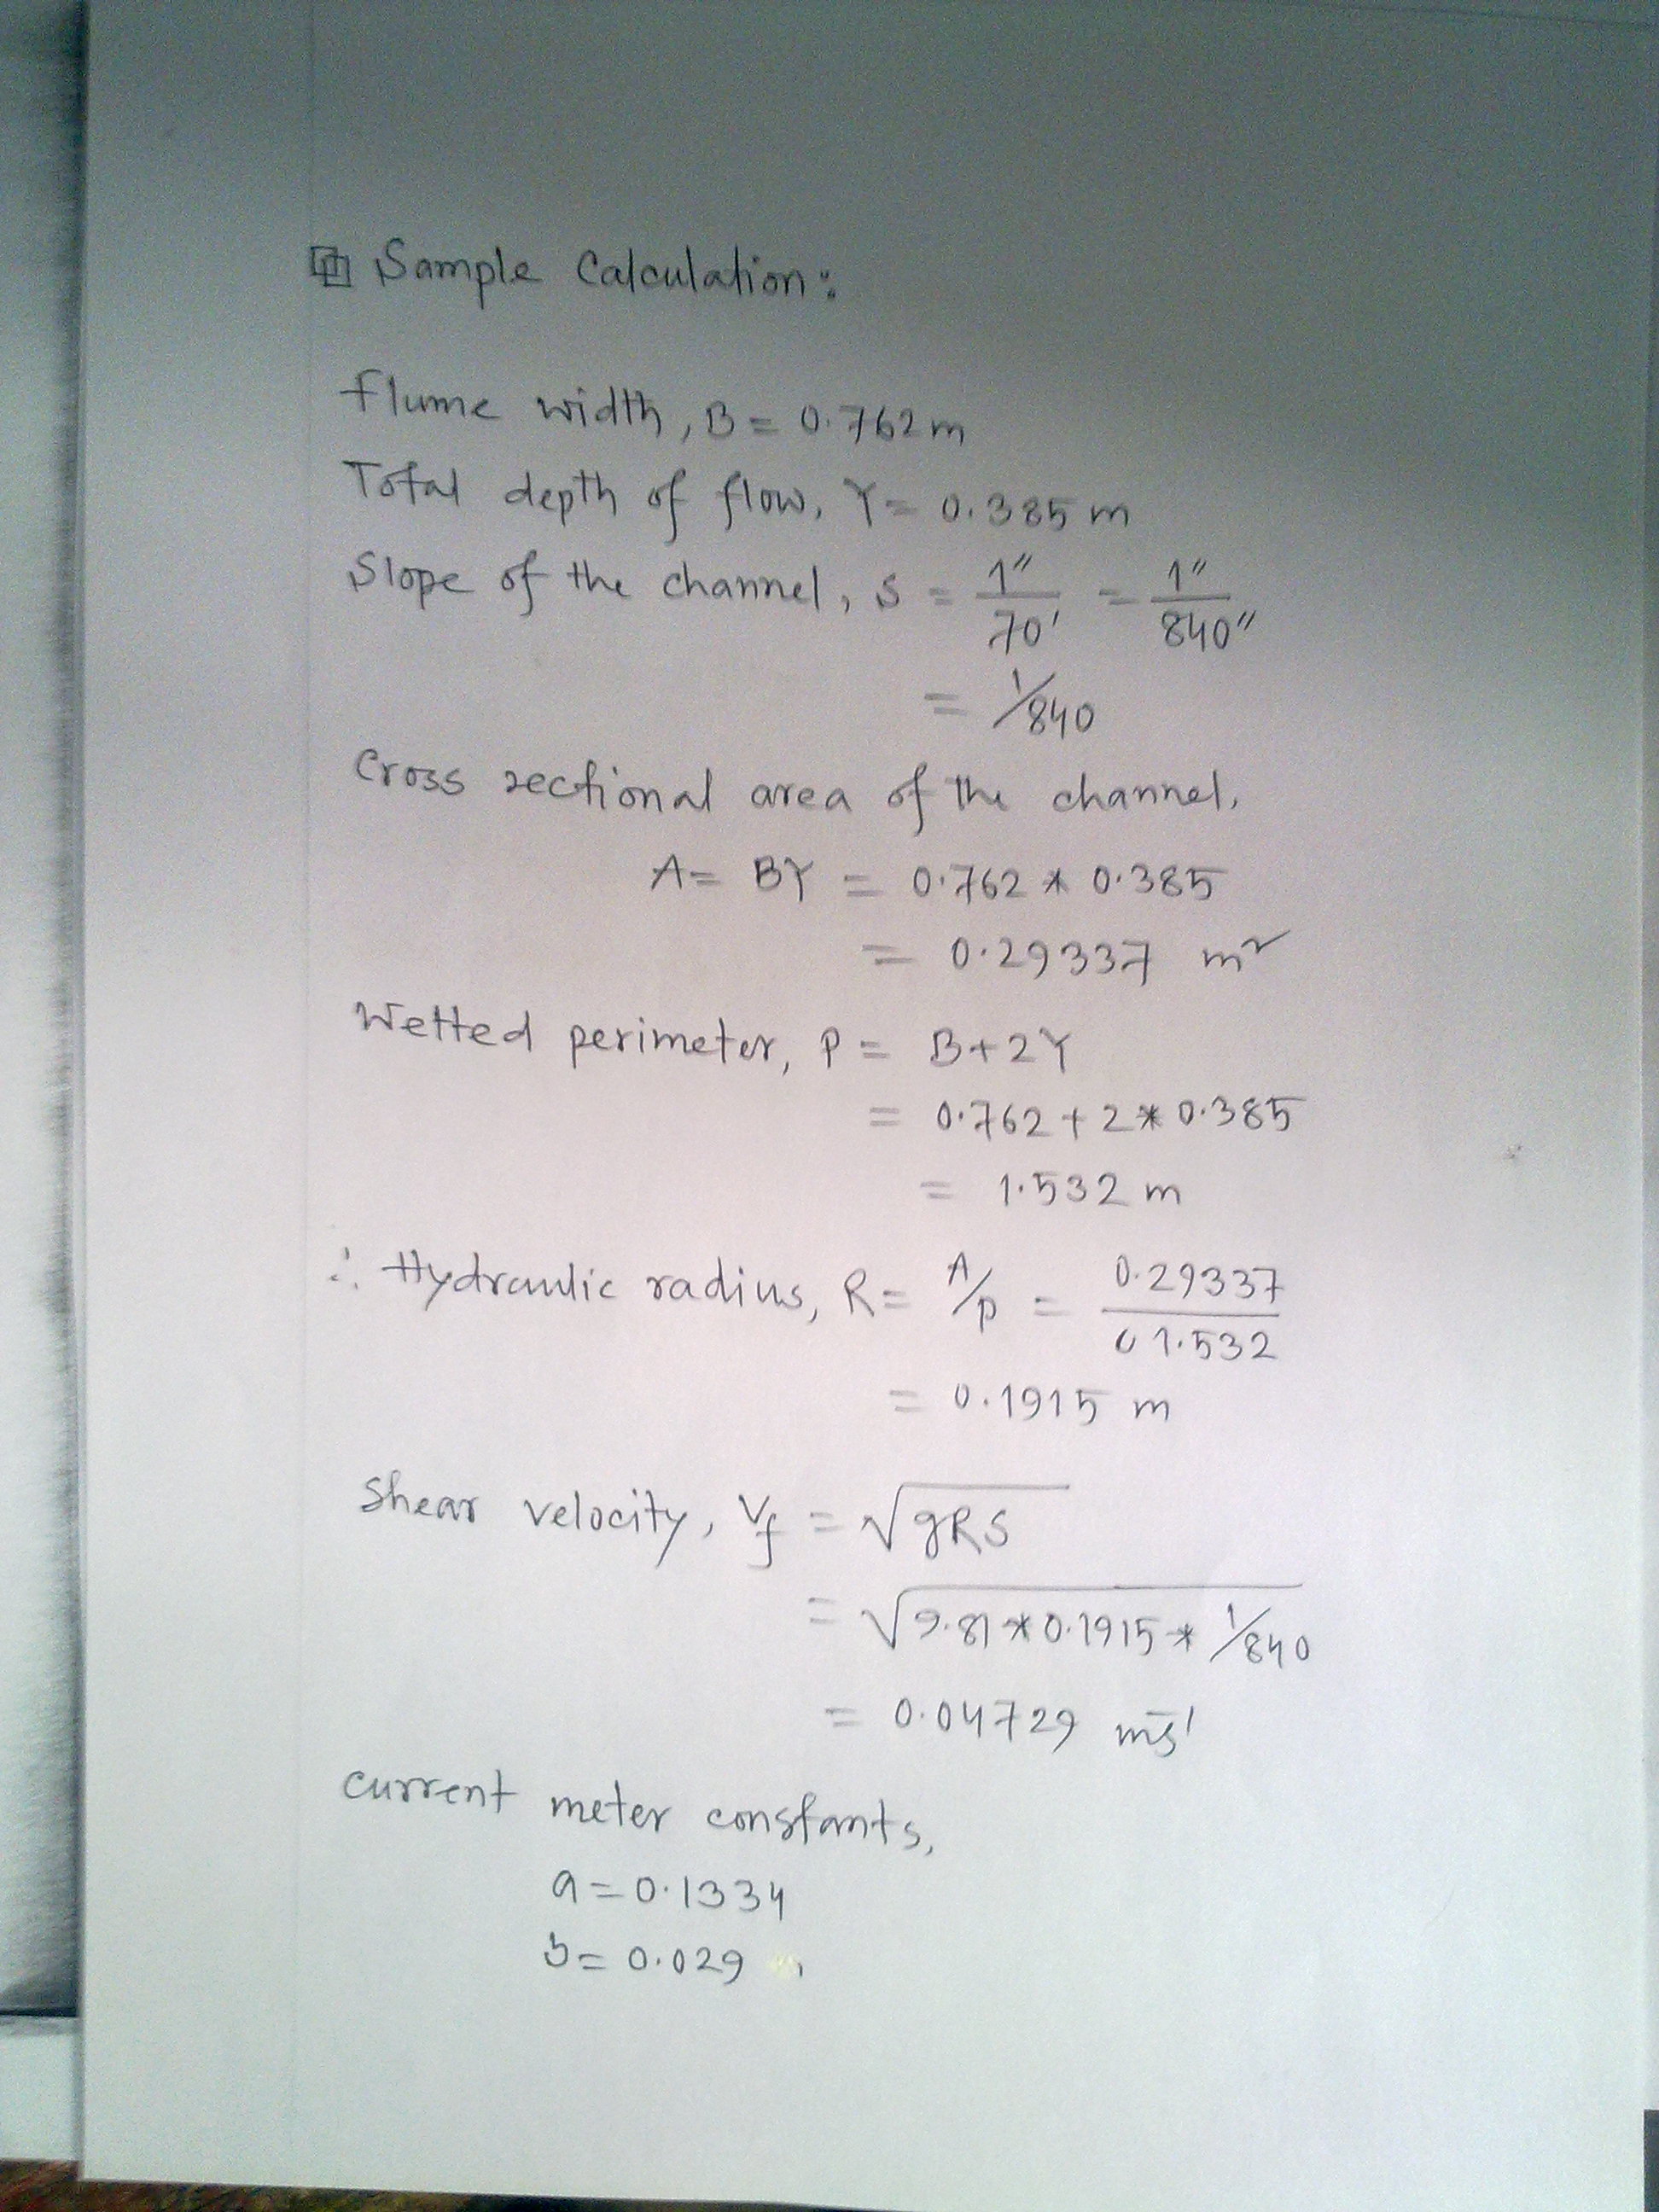 Sample Calculation:
Flume width, B = 0.762 m
Total depth of flow, Y = 0.385 m
Slope of the channel, S = 1"/70' = 1"/840"
= 1/840
Cross sectional area of the channel,
A = BY = 0.762 * 0.385
= 0.29337 m²
Wetted perimeter, P = B+2Y
= 0.762 + 2 * 0.385
= 1.532 m
∴ Hydraulic radius, R = A/P = 0.29337/1.532
= 0.1915 m
Shear velocity, Vf = √gRS
= √9.81 * 0.1915 * 1/840
= 0.04729 ms⁻¹
Current meter constants,
a = 0.1334
b = 0.029